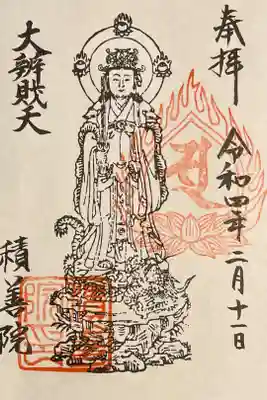 奉拝
令和四年二月十一日
大辨財天
積善院